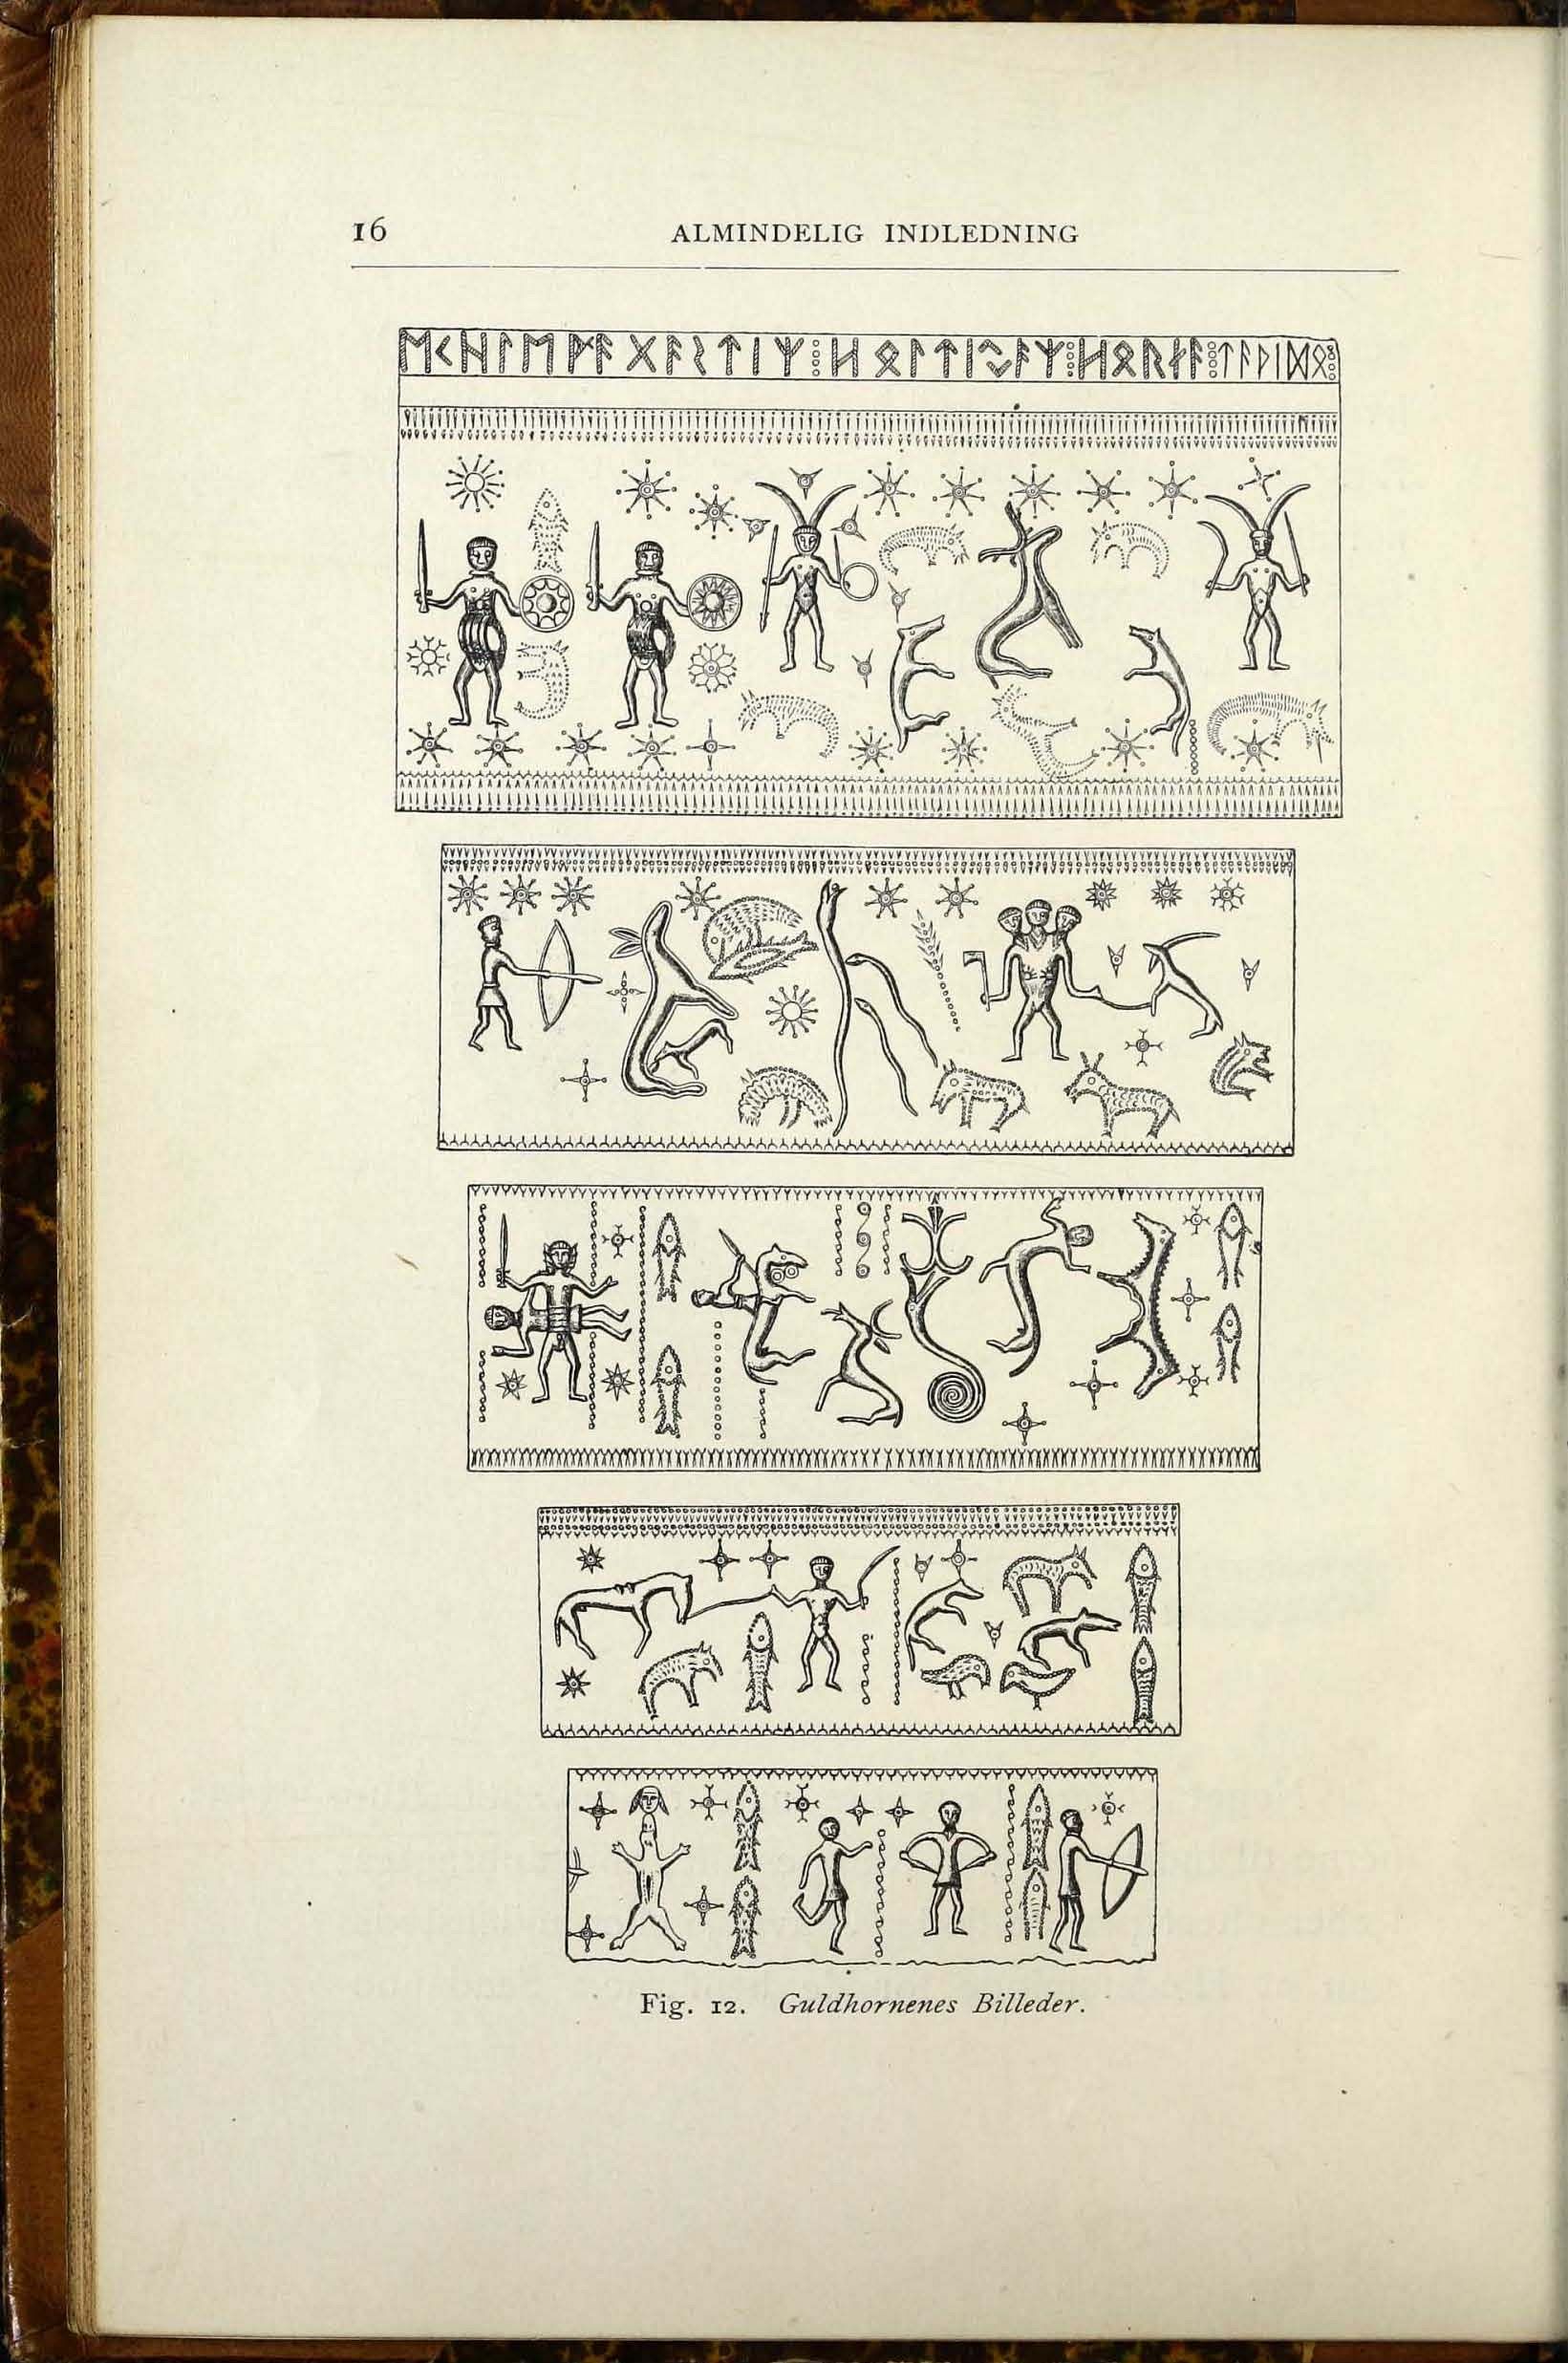 16 ALMINDELIG INDLEDNING
ᛖᚲᚺᛚᛖᚹᚨᚷᚨᛊᛏᛁᛉ⁞ᚺᛟᛚᛏᛁᛃᚨᛉ⁞ᚺᛟᚱᚾᚨ⁞ᛏᚨᚹᛁᛞᛟ⁞
Fig. 12. Guldhornenes Billeder.